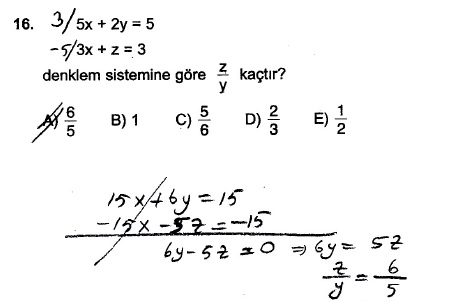 16. 3/ 5x + 2y = 5
-5/ 3x + z = 3
denklem sistemine göre z/y kaçtır?
A) 6/5 B) 1 C) 5/6 D) 2/3 E) 1/2
15x + 6y = 15
-15x - 5z = -15
6y - 5z = 0 ⇒ 6y = 5z
z/y = 6/5